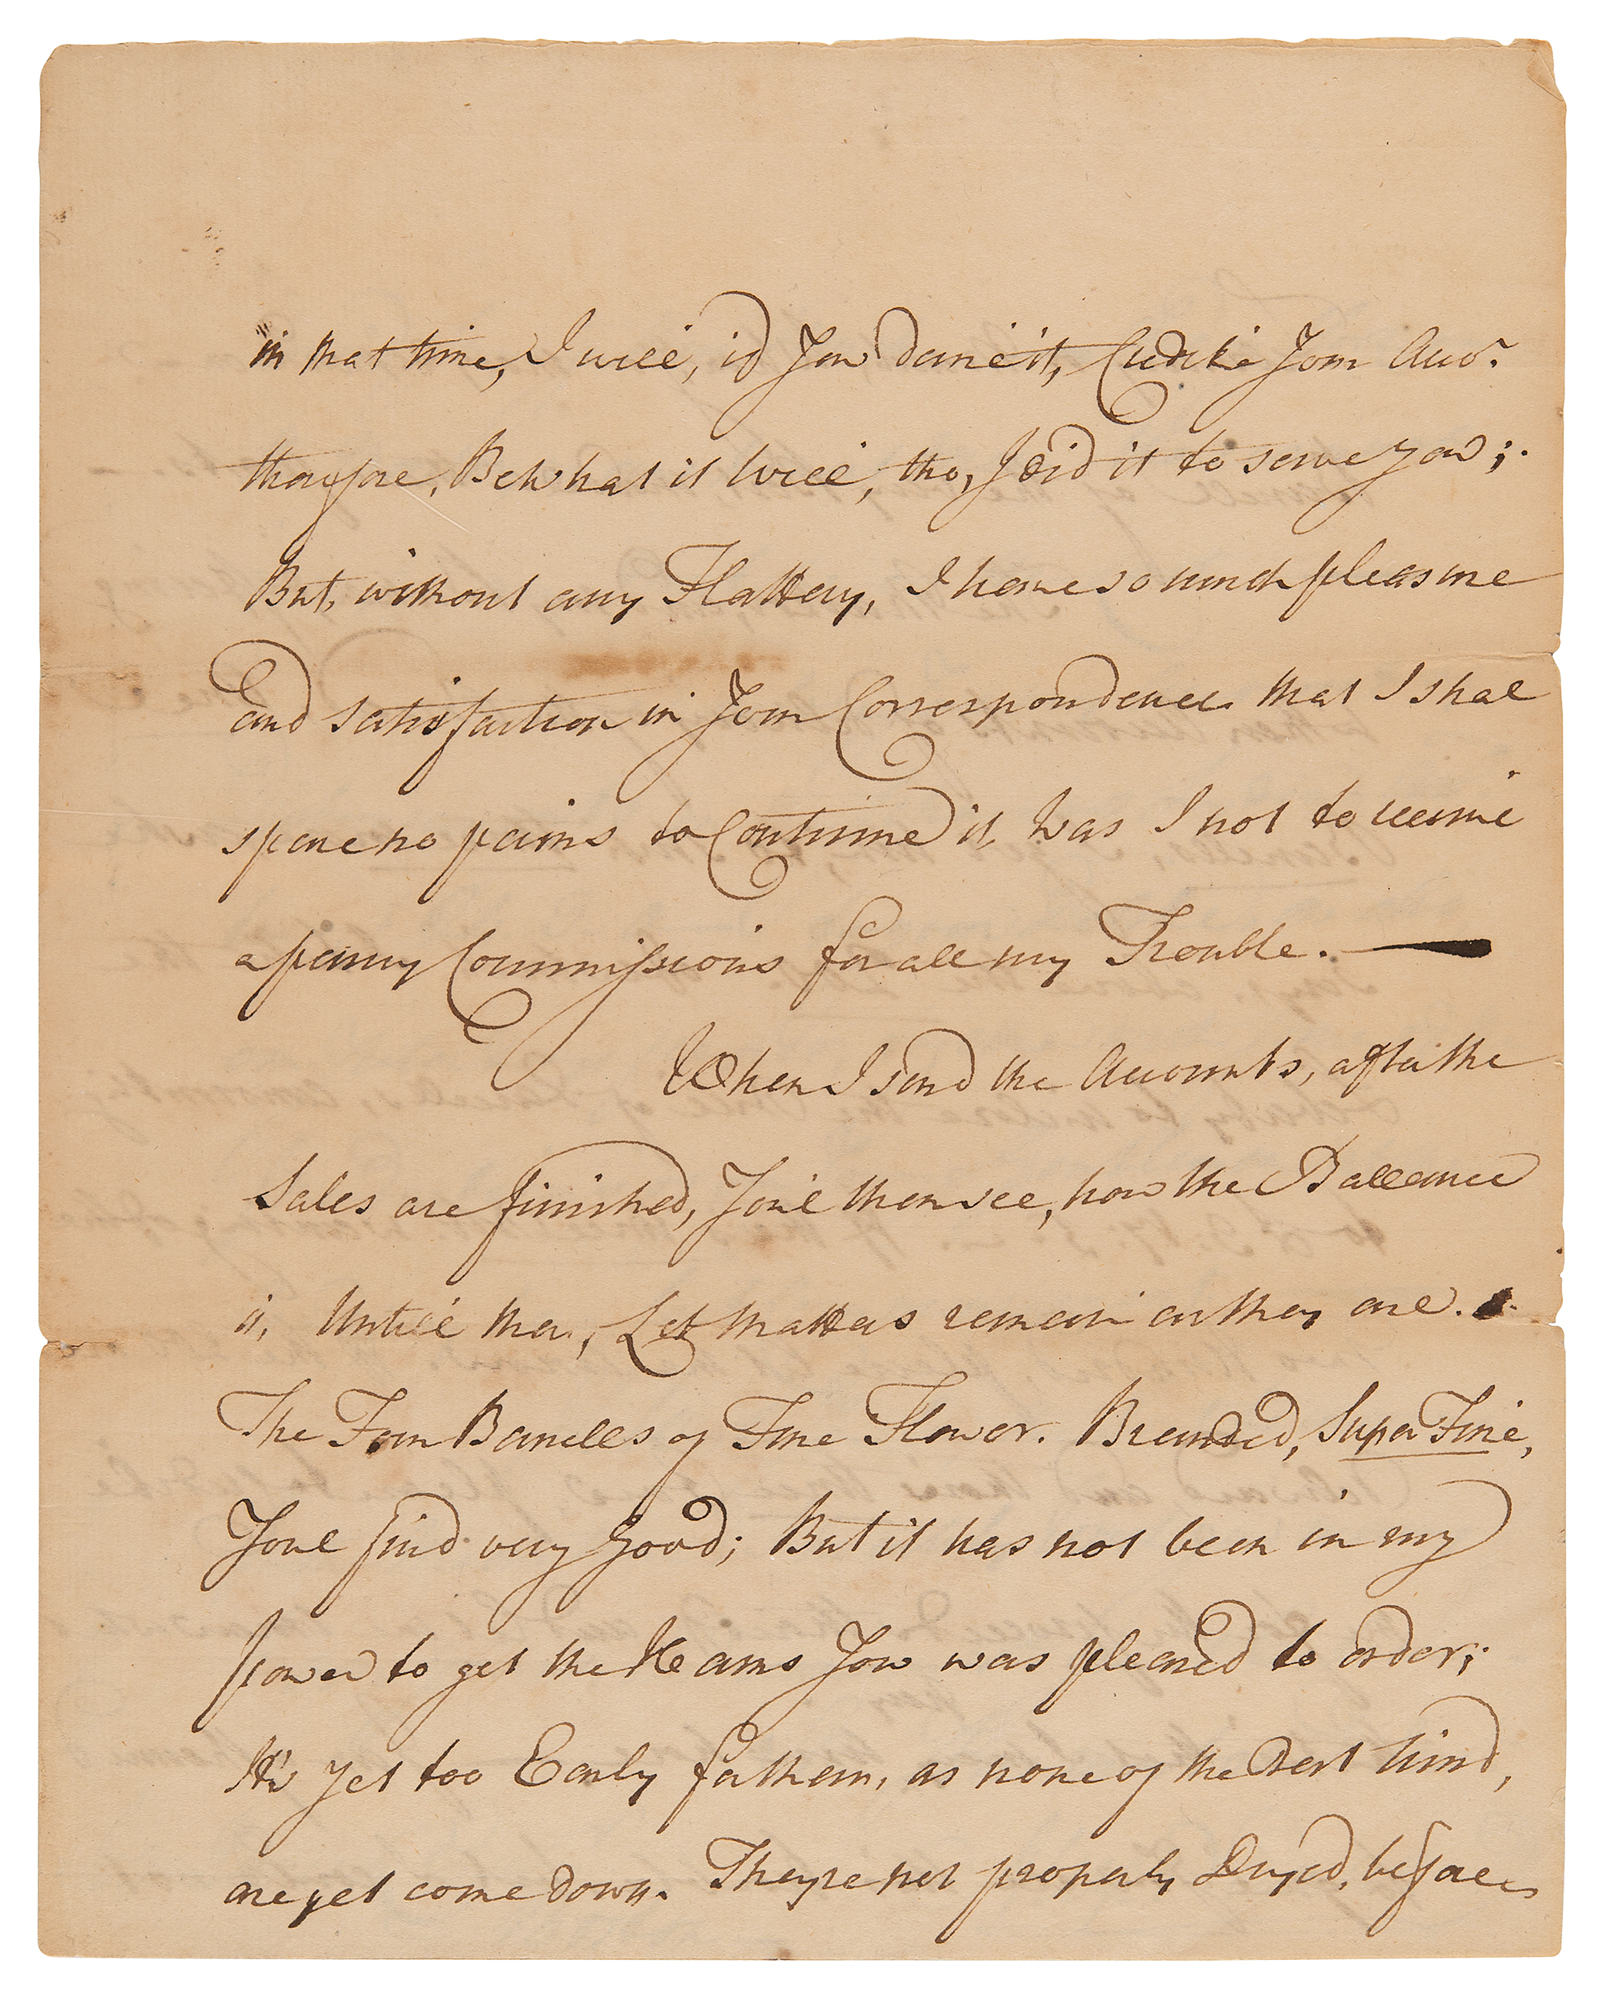 in that time, I will, if You desire it, Credit Your Acco.t
therefore, Be what it will, tho, I did it to serve you;
But, without any Flattery, I have so much pleasure
and satisfaction in Your Correspondence that I shal
spare no pains to Continue it, was I not to receive
a penny Commissions for all my Trouble.
When I send the Accounts, after the
Sales are finished, You'l then see, how the Ballance
is, Untill then, Let Matters remain as they are.
The Four Barrells of Fine Flower. Branded, Super Fine,
Youl find very good; But it has not been in my
power to get the Hams You was pleased to order;
It's yet too Early for them, as none of the best kind,
are yet come down. They're not properly Dryed, before